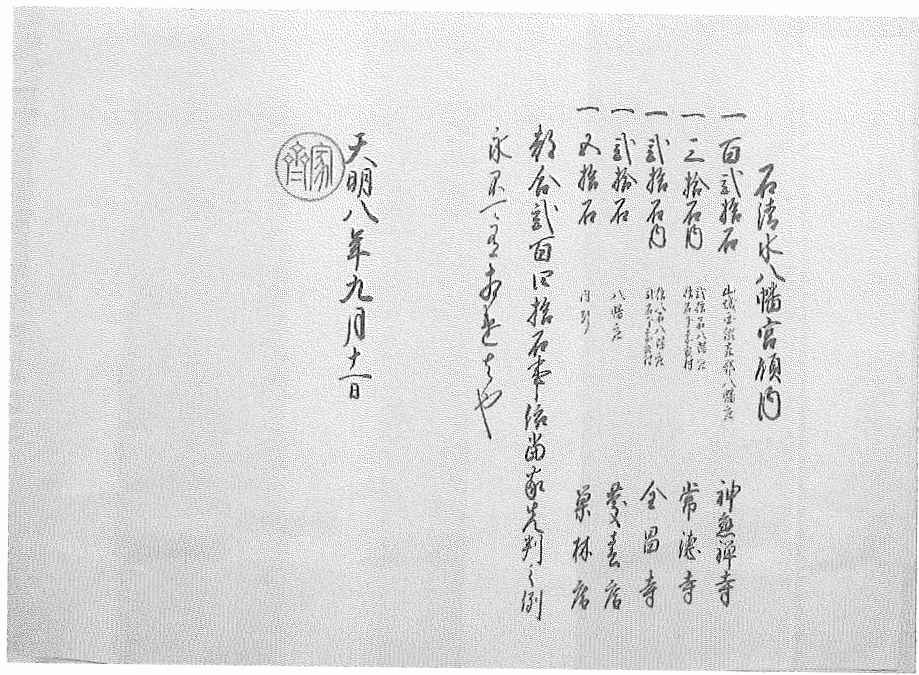 石清水八幡宮領内
一百弐拾石 山城国綴喜郡八幡庄 神應禅寺
一三拾石内 弐拾石八幡庄 拾石下奈良村 常徳寺
一弐拾石内 拾八石八幡庄 弐石下奈良村 全昌寺
一弐拾石 八幡庄 慶春庵
一五拾石 同所 巣林庵
都合弐百四拾石事依当家先判之例
永不可有相違者也
天明八年九月十一日
家齊